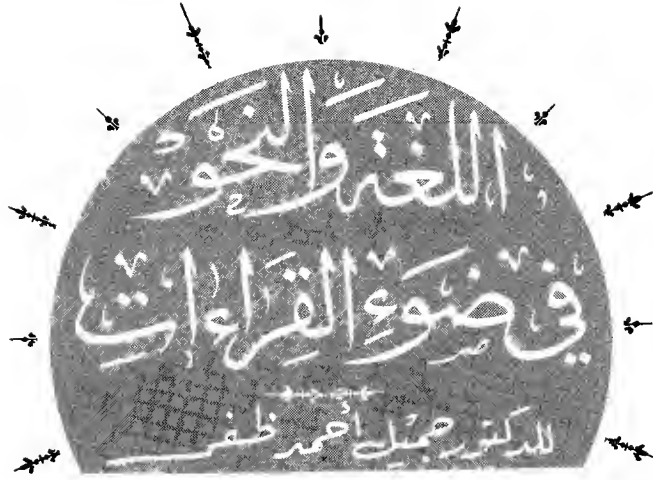 اللغة والنحو
في ضوء القراءات
للدكتور جميل أحمد ظفر